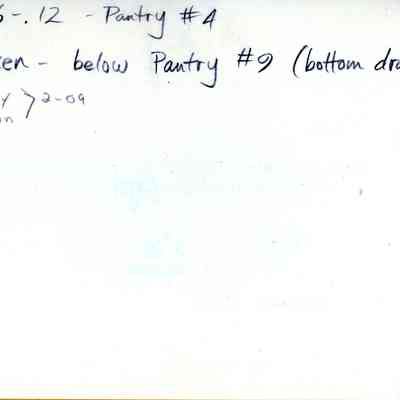 5-.12 - Pantry #4
en - below Pantry #9 (bottom dra
y > 2-09
n